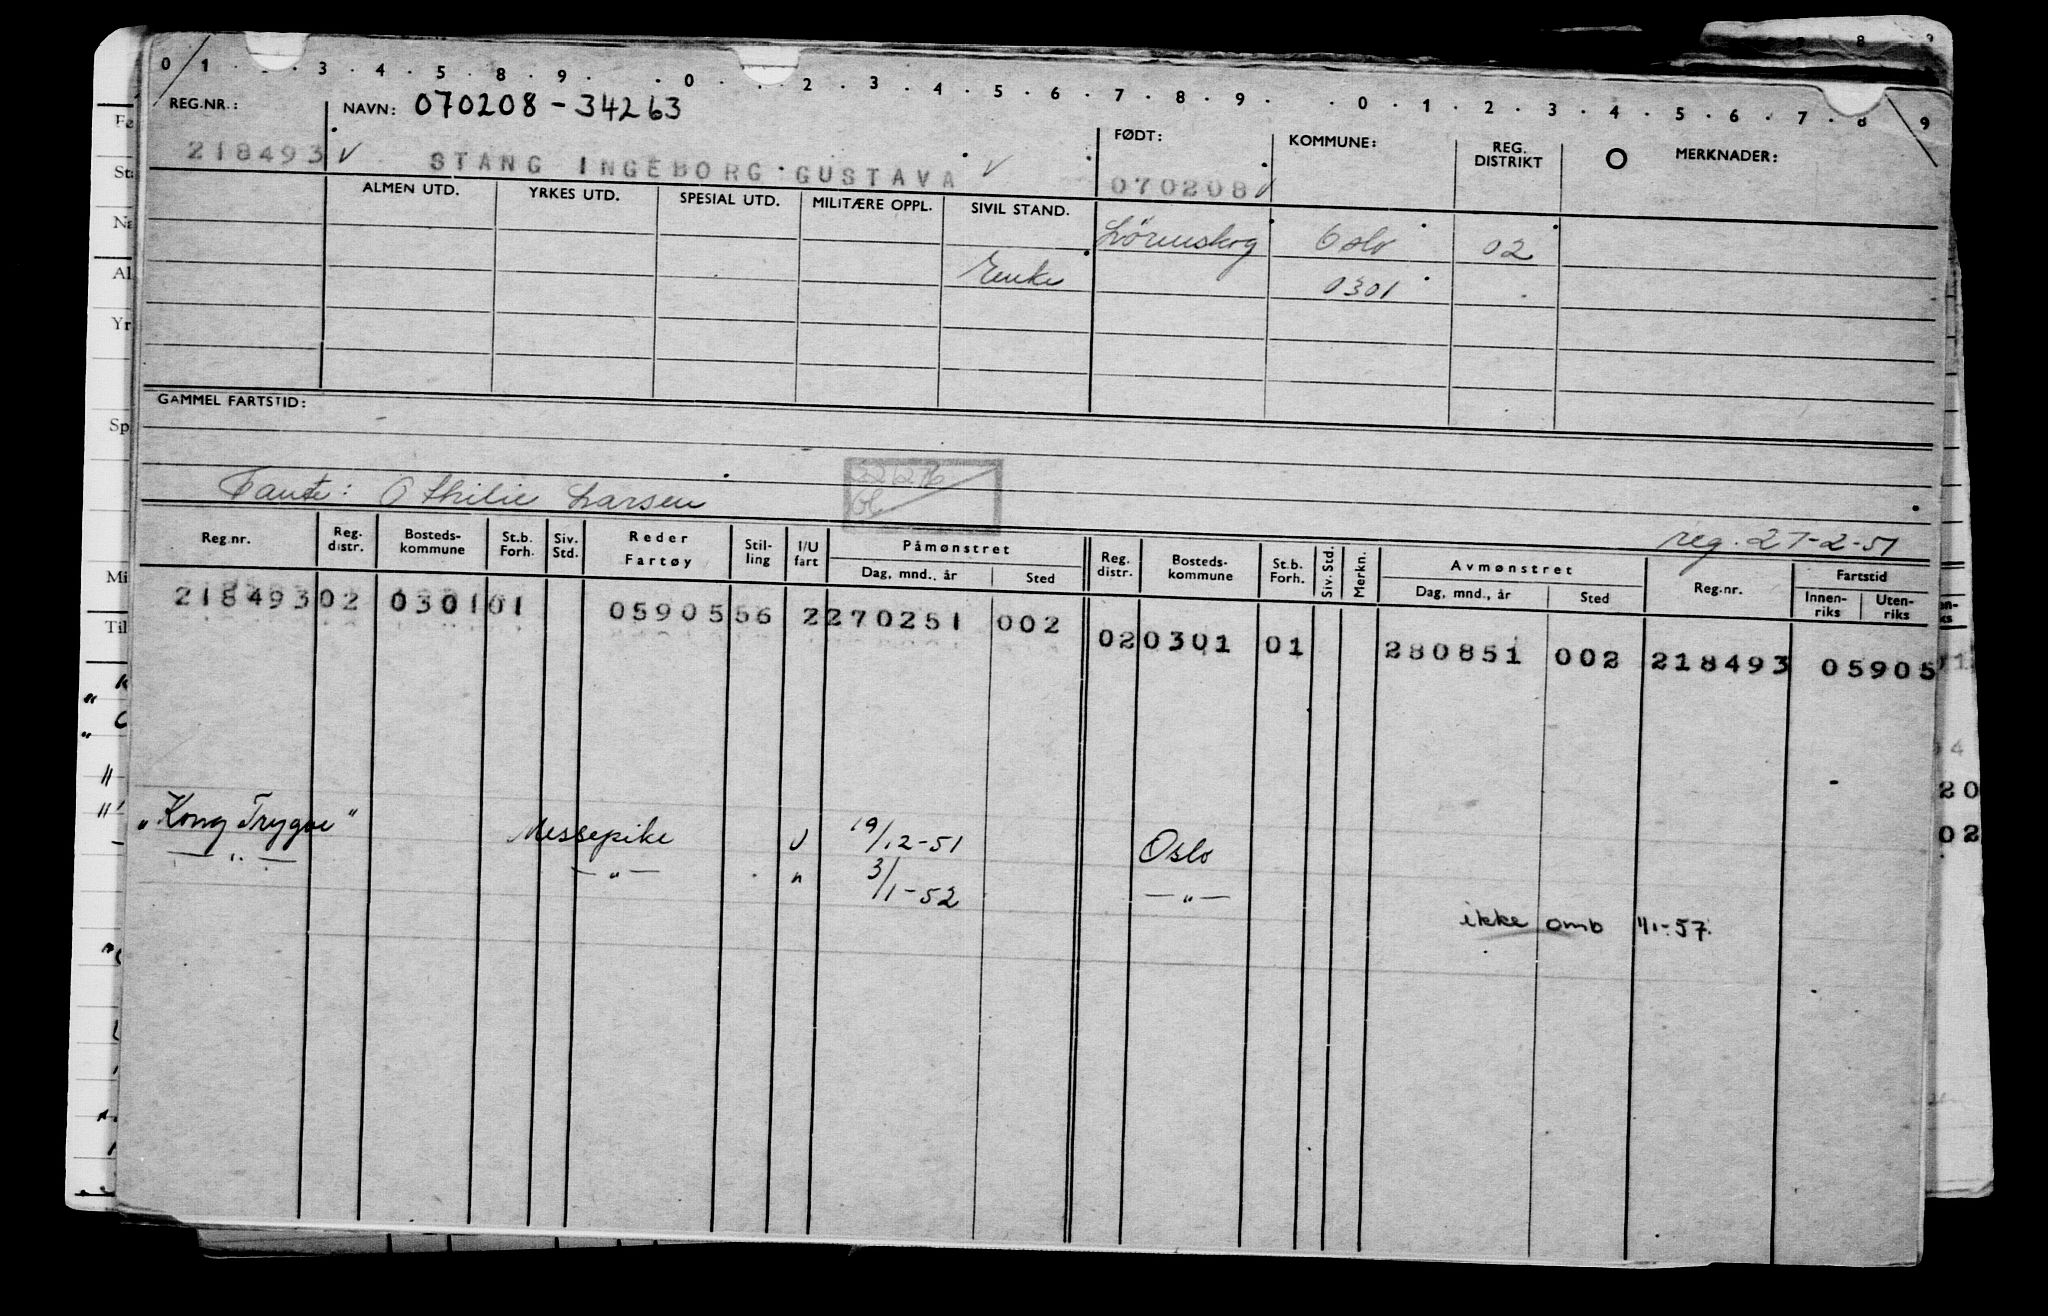 0 1 . . 3 . 4 . 5 . 8 . 9 . . 0 . . 2 . 3 . 4 . 5 . 6 . 7 . 8 . 9 . . 0 . 1 . 2 . 3 . 4 . 5 . 6 . 7 . 8 . 9
REG.NR.: NAVN: 070208-34263 FØDT: KOMMUNE: REG. DISTRIKT O MERKNADER:
218493 √ STANG INGEBORG GUSTAVA √ 070208 √
ALMEN UTD. YRKES UTD. SPESIAL UTD. MILITÆRE OPPL. SIVIL STAND.
Lørenskog Oslo 02
Enke 0301
GAMMEL FARTSTID: -
Tante: Othilie Larsen
reg. 27-2-51
Reg.nr. Reg. distr. Bosteds-kommune St.b. Forh. Siv. Std. Reder Fartøy Stil-ling I/U fart Påmønstret Dag, mnd., år Sted Reg. distr. Bosteds-kommune St.b. Forh. Siv. Std. Merkn. Avmønstret Dag, mnd., år Sted Reg.nr. Fartstid Innen-riks Uten-riks
218493 02 0301 01 05905 56 2 270251 002 02 0301 01 280851 002 218493 05905
"Kong Trygve" Messepike U 19/12-51 Oslo
— " — — " — " 3/1-52 — " —
ikke omb 1/1-57.